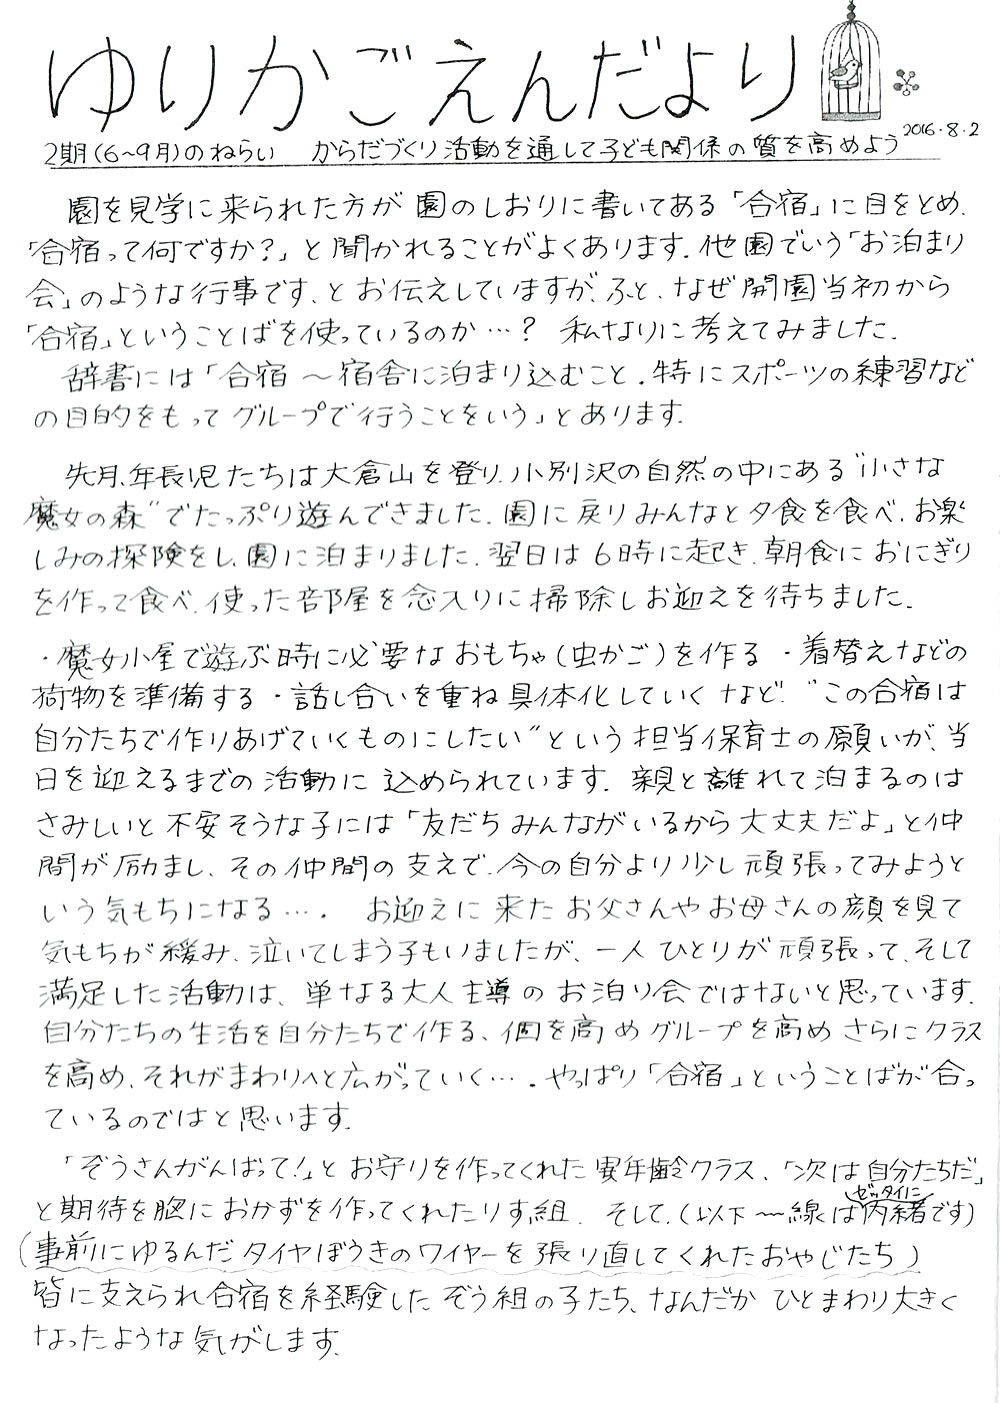 ゆりかごえんだより
2016.8.2
2期(6~9月)のねらい からだづくり活動を通して子ども関係の質を高めよう
園を見学に来られた方が園のしおりに書いてある「合宿」に目をとめ、
「合宿って何ですか?」と聞かれることがよくあります。他園でいう「お泊まり
会」のような行事です、とお伝えしていますが、ふと、なぜ開園当初から
「合宿」ということばを使っているのか…? 私なりに考えてみました。
辞書には「合宿 ~ 宿舎に泊まり込むこと。特にスポーツの練習など
の目的をもってグループで行うことをいう」とあります。
先月、年長児たちは大倉山を登り、小別沢の自然の中にある“小さな
魔女の森”でたっぷり遊んできました。園に戻りみんなと夕食を食べ、お楽
しみの探険をし、園に泊まりました。翌日は6時に起き、朝食におにぎり
を作って食べ、使った部屋を念入りに掃除しお迎えを待ちました。
・魔女小屋で遊ぶ時に必要なおもちゃ(虫かご)を作る ・着替えなどの
荷物を準備する ・話し合いを重ね具体化していく など、“この合宿は
自分たちで作りあげていくものにしたい”という担当保育士の願いが、当
日を迎えるまでの活動に込められています。親と離れて泊まるのは
さみしいと不安そうな子には「友だちみんながいるから大丈夫だよ」と仲
間が励まし、その仲間の支えで、今の自分より少し頑張ってみようと
いう気もちになる…。 お迎えに来たお父さんやお母さんの顔を見て
気もちが緩み、泣いてしまう子もいましたが、一人ひとりが頑張って、そして
満足した活動は、単なる大人主導のお泊り会ではないと思っています。
自分たちの生活を自分たちで作る、個を高めグループを高めさらにクラス
を高め、それがまわりへと広がっていく…。やっぱり「合宿」ということばが合っ
ているのではと思います。
「ぞうさんがんばって!」とお守りを作ってくれた異年齢クラス、「次は自分たちだ」
と期待を胸におかずを作ってくれたりす組。そして、(以下~線はゼッタイに内緒です)
(事前にゆるんだタイヤぼうきのワイヤーを張り直してくれたおやじたち)
皆に支えられ合宿を経験したぞう組の子たち、なんだかひとまわり大きく
なったような気がします。